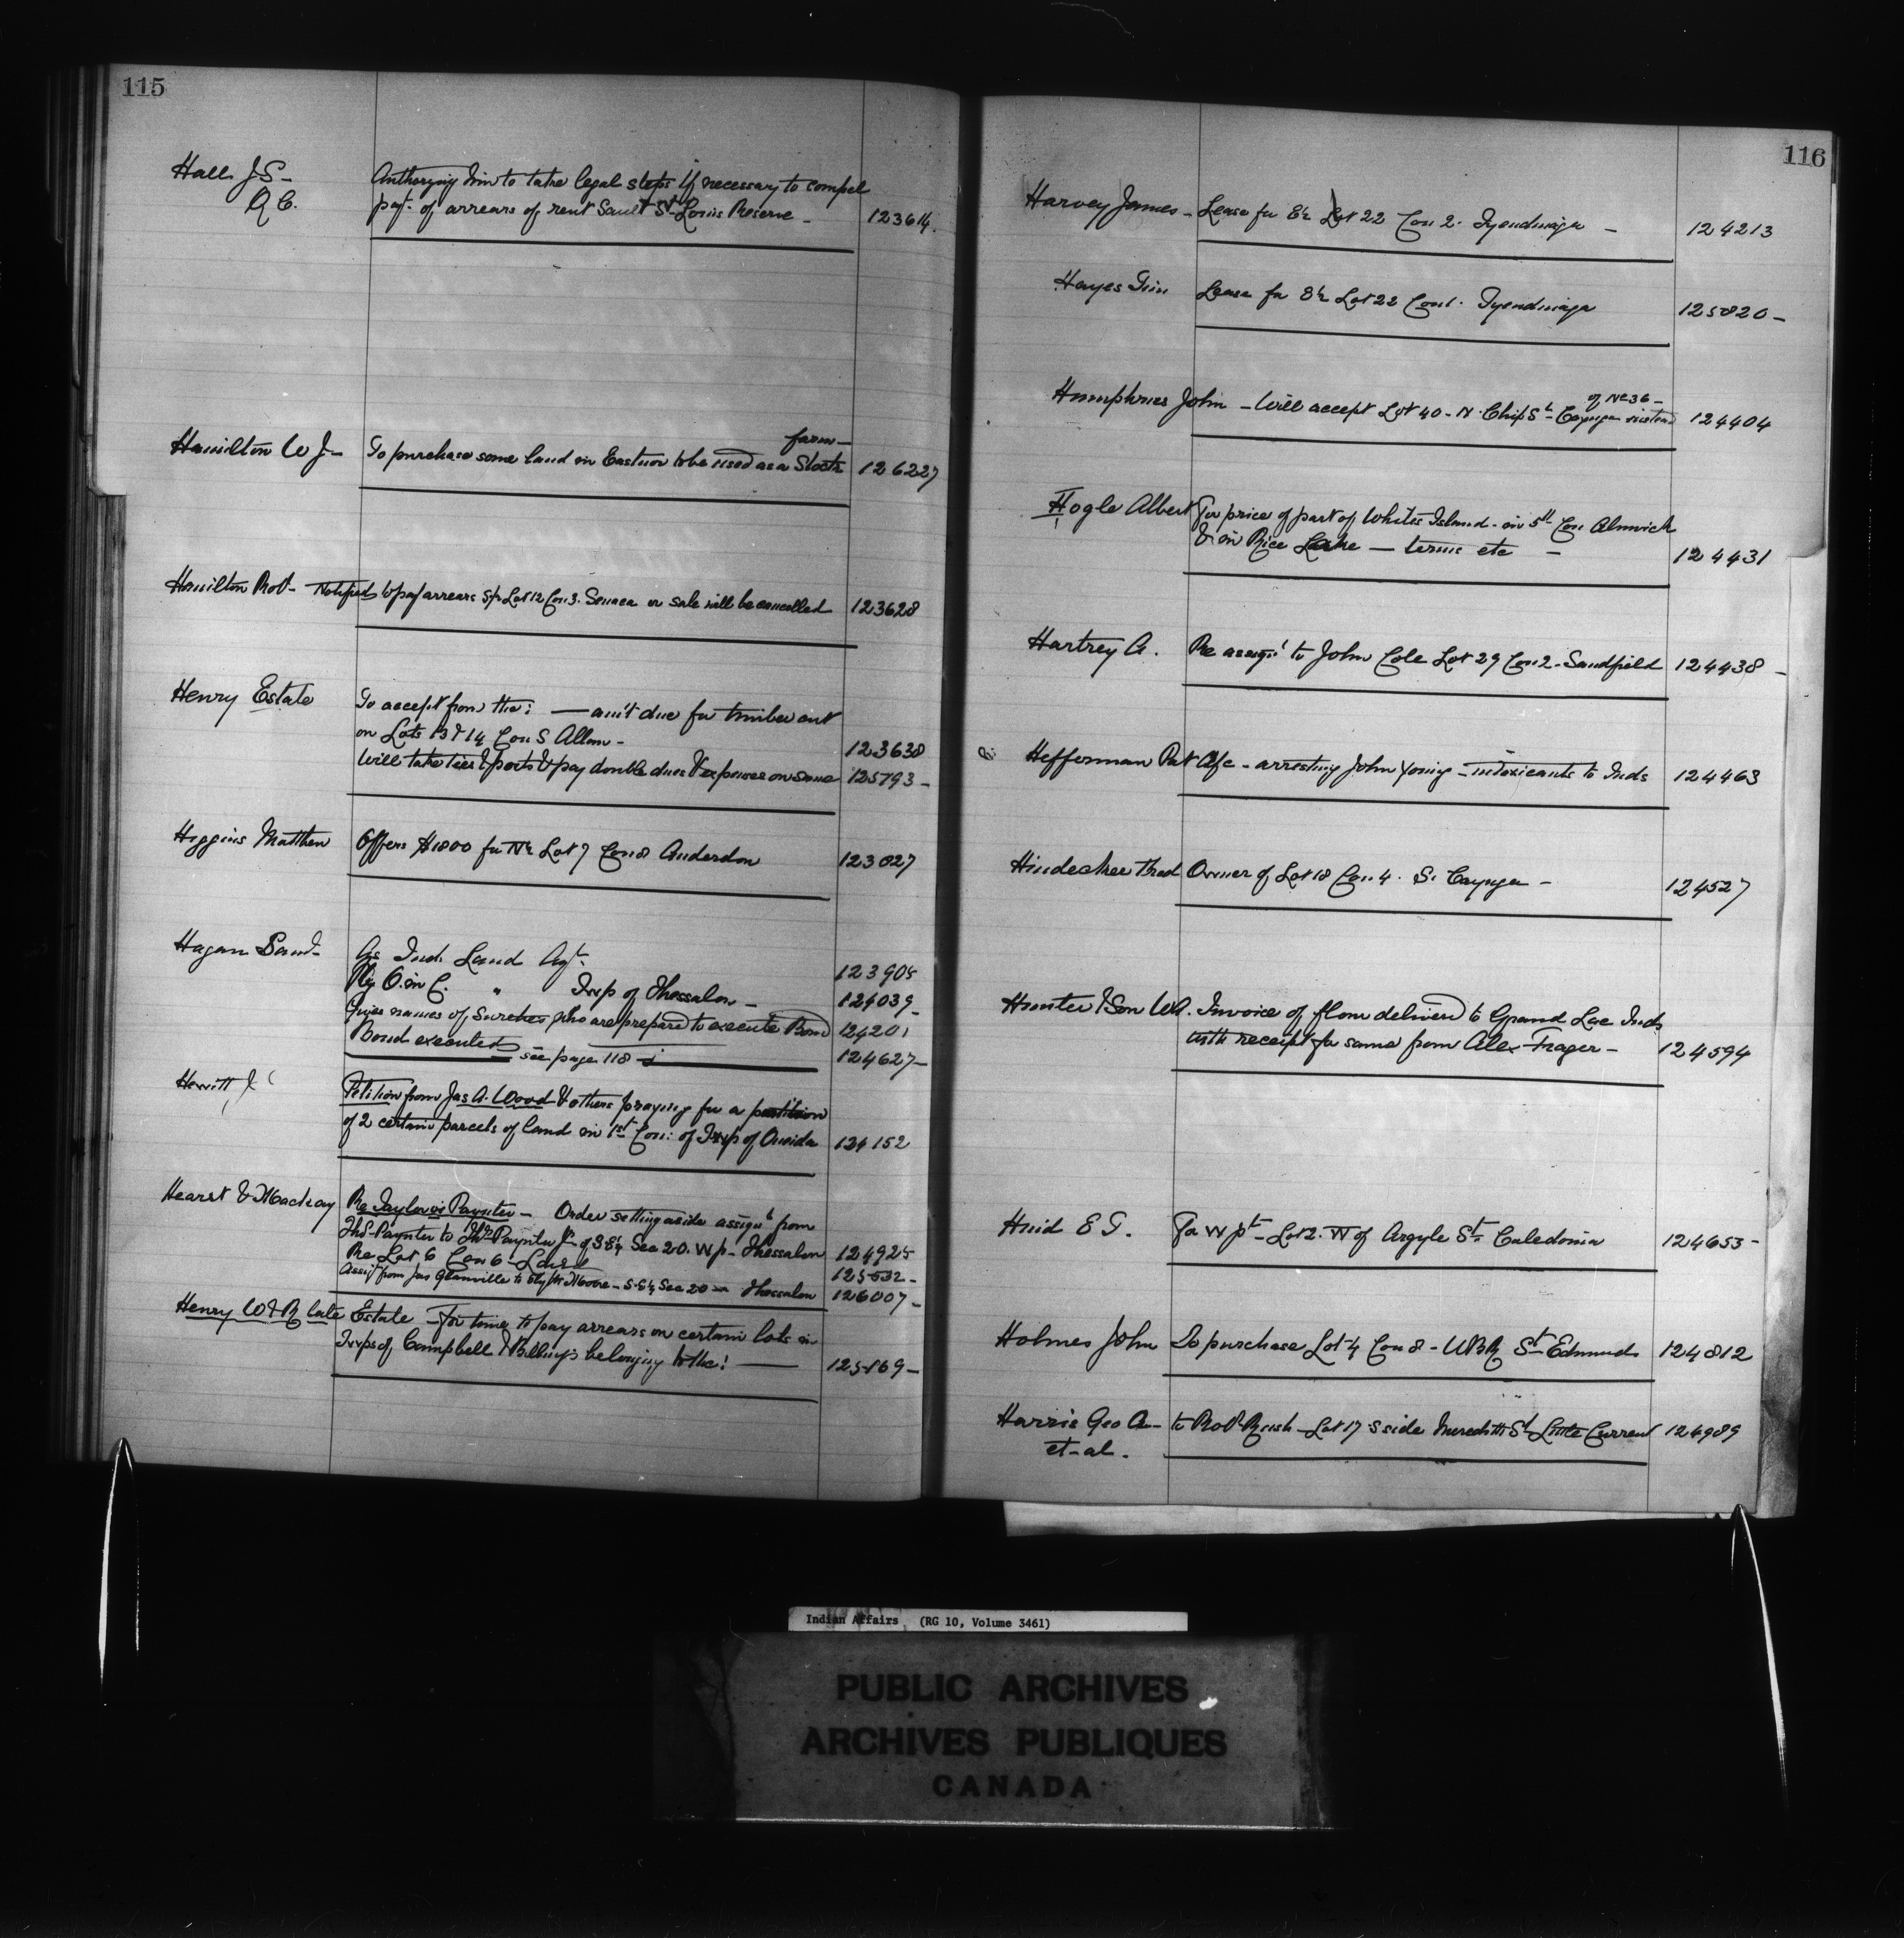 115
Hall J S - Authorizing him to take legal steps if necessary to compel
Q C. pay't of arrears of rent Sault St Louis Reserve - 123614.
farm -
Hamilton W J - To purchase some land in Eastnor to be used as a Stock 126227
Hamilton Robt - Notified to pay arrears Lot 12 Con 3. Seneca or sale will be cancelled 123628
Henry Estate To accept from the: — am't due for timber cut
on Lots 13 & 14 Con S Allan - 123638
Will take ties & posts & pay double dues & expenses on same 125793 -
Higgins Matthew Offers $1800 for N½ Lot 7 Con 8 Anderdon 123827
Hagan Saml - As Ind. Land Agt. 123905
O. in C. " Twp of Thessalon - 124039 -
Gives names of Sureties who are prepared to execute Bond 124201
Bond executed see page 118 124627 -
Hewitt J Petition from Jas A. Wood & others praying for a partition
of 2 certain parcels of land in 1st Con: of Twp of Oneida 124152
Hearst & Mackay Re Taylor vs Paynter - Order setting aside assign't from
Thos Paynter to Thos Paynter Jr of S E¼ Sec 20. W p - Thessalon 124925
Re Lot 6 Con 6 - Laird 125532 -
Assigt from Jas Glanville to Moore - S.E¼ Sec 20 - Thessalon 126007 -
Henry W & R late Estate - For time to pay arrears on certain lots in
Twps of Campbell & Billings belonging to the: — 125169 -
116
Harvey James - Lease for E½ Lot 22 Con 2. Tyendinaga - 124213
Hayes Lease for E½ Lot 22 Con 1. Tyendinaga 125820 -
of No 36 -
Humphries John - Will accept Lot 40 - N. Chip St - Cayuga instead 124404
Hogle Albert For price of part of Whites Island - in 5th Con Alnwick
& in Rice Lake — terms etc - 124431
Hartrey A. Re assign't to John Cole Lot 29 Con 2 - Sandfield 124438 -
Hefferman Pat A/c - arresting John Young - intoxicants to Inds 124463
Hindechee Thad Owner of Lot 18 Con 4. S. Cayuga - 124527
Hunter & Son Wm. Invoice of flour delivered to Grand Lac Inds
with receipt for same from Alex Frager - 124594
Huid E G. For W pt - Lot 2. W of Argyle St. Caledonia 124653 -
Holmes John To purchase Lot 4 Con 8 - W B R St Edmunds 124812
Harris Geo A - to Robt Rush - Lot 17 S side Meredith St Little Current 124989
et - al.
Indian Affairs (RG 10, Volume 3461)
PUBLIC ARCHIVES
ARCHIVES PUBLIQUES
CANADA